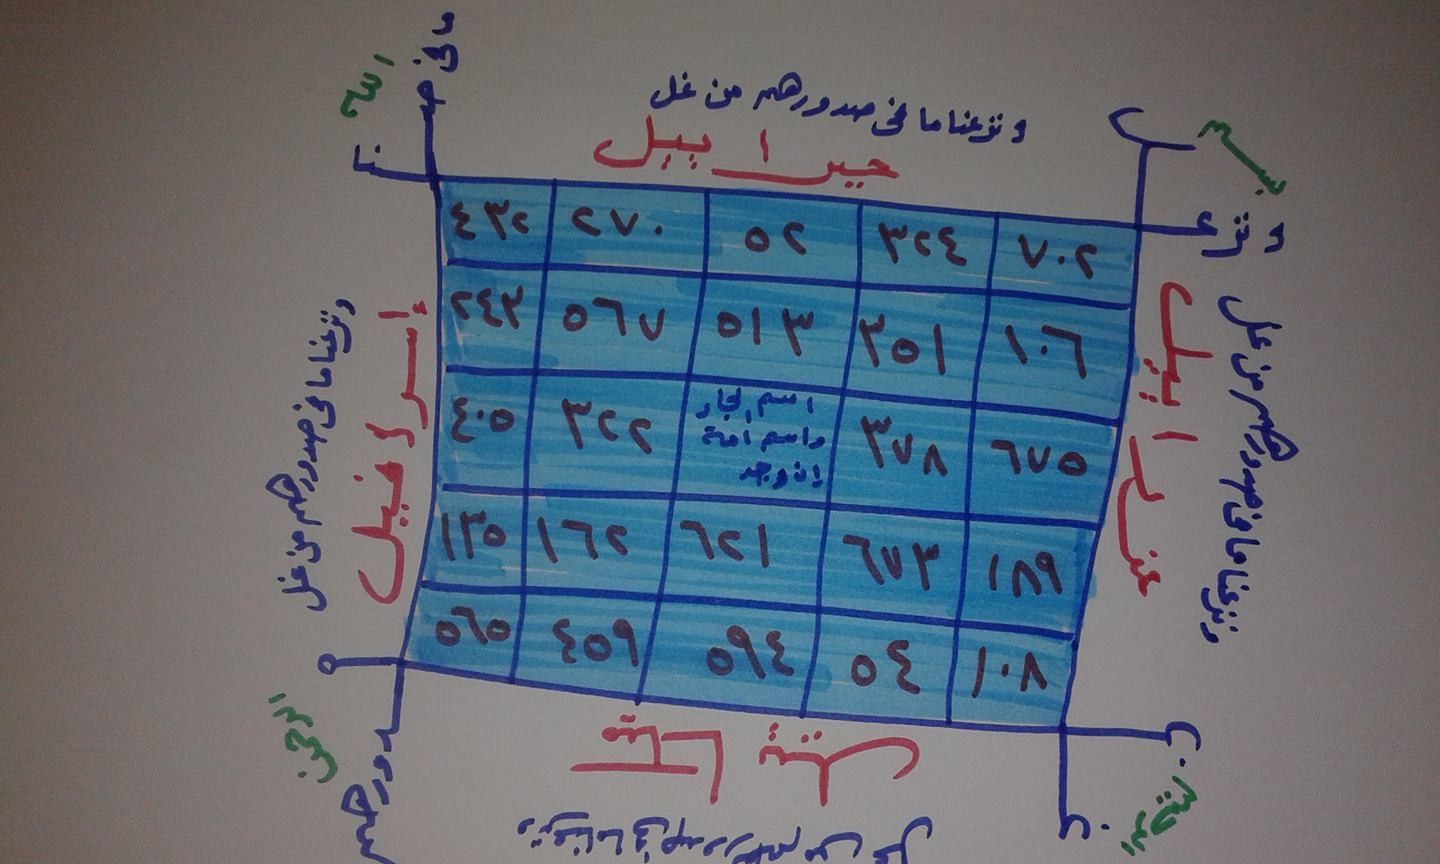 بسم
الله
الرحمن
الرحيم
ما في صد
ونزعنا ما في صدورهم من غل
جبرائيل
ونزع
نا
٤٣٢ ٢٧٠ ٥٢ ٣٢٤ ٧٠٢
٣٤٢ ٥٦٧ ٥١٣ ٣٥١ ١٠٦
٤٠٥ ٣٢٢ اسم الجار واسم امه إن وجد ٣٧٨ ٦٧٥
١٣٥ ١٦٢ ٦٢١ ٦٧٣ ١٨٩
٥٦٥ ٤٥٩ ٥٩٤ ٤٥ ٨٠١
ونزعنا ما في صدورهم من غل
عزرائيل
ونزعنا ما في صدورهم من غل
إسرافيل
دورهم
ميكائيل
ونزعنا ما في صدورهم من غل